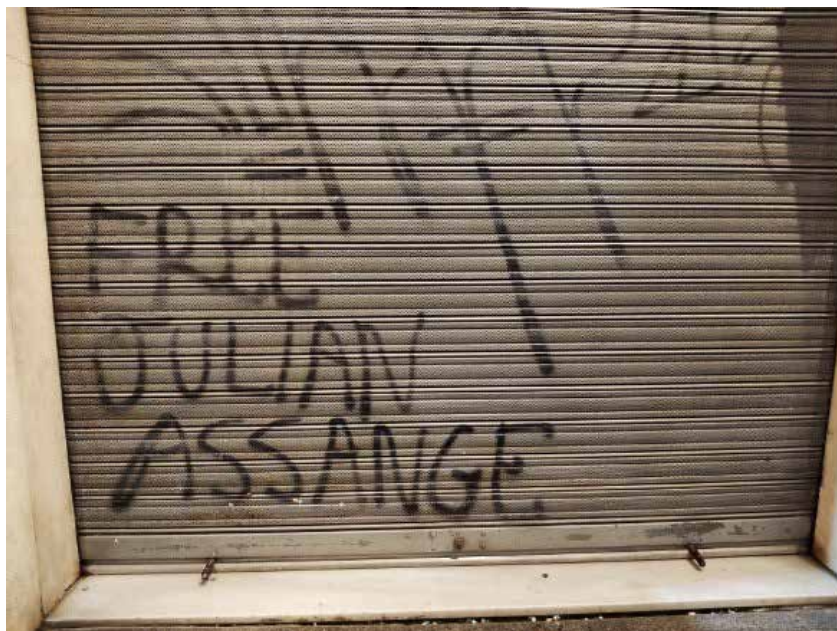 FREE
JULIAN
ASSANGE